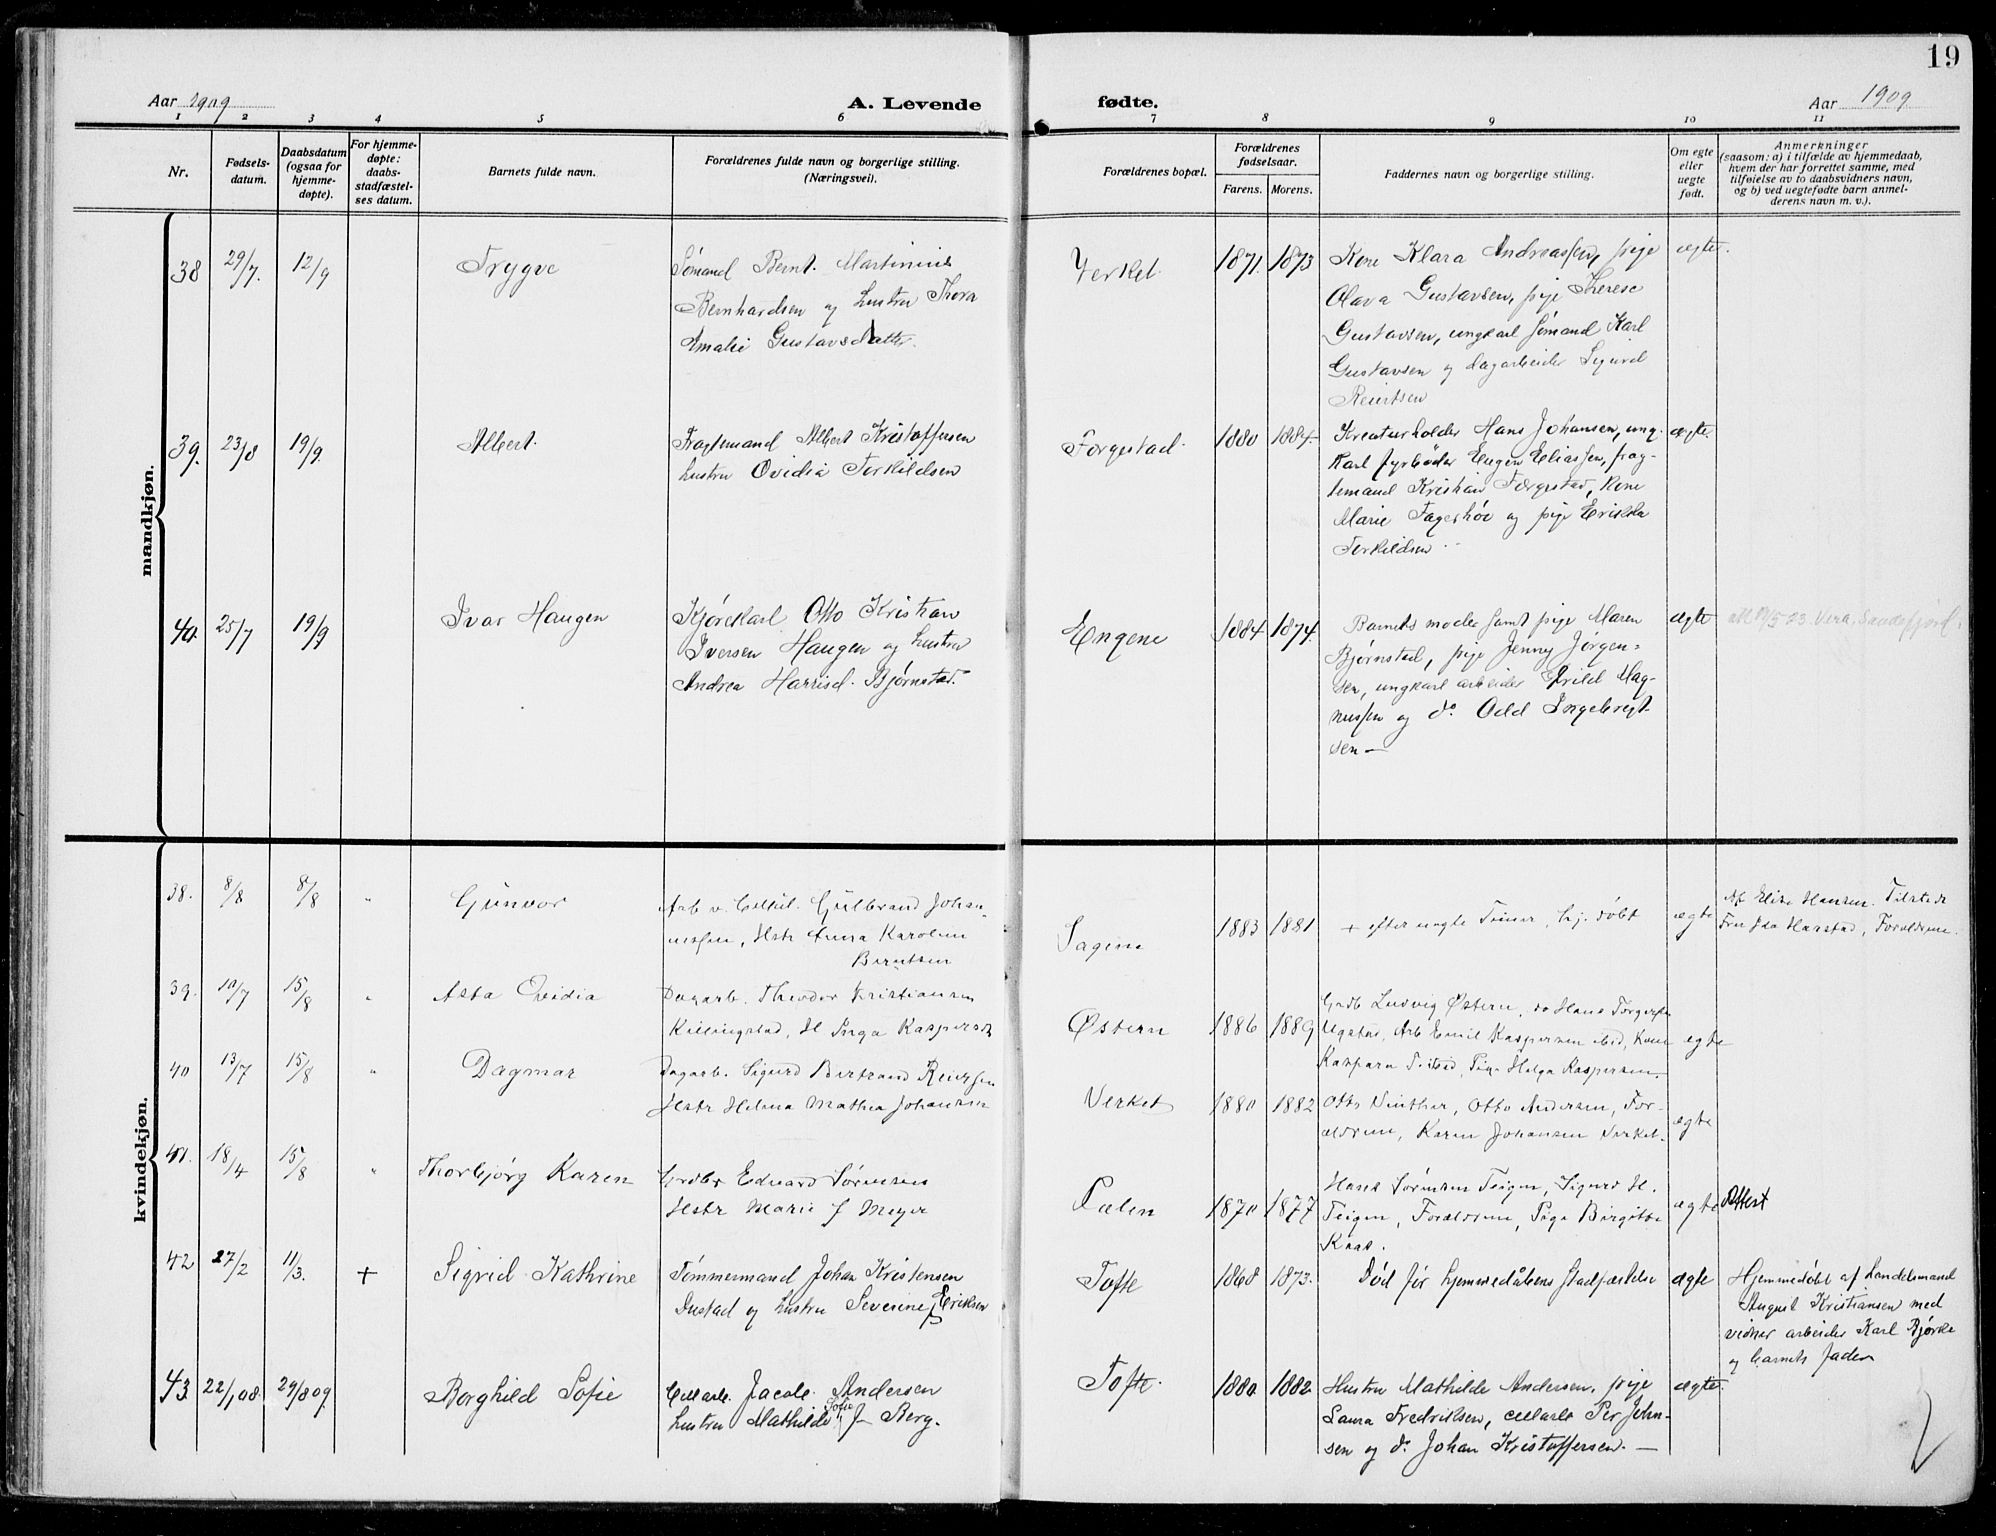 19
Aar 1909
A. Levende
fødte.
Aar 1909
1 2 3 4 5 6 7 8 9 10 11
Nr.
Fødsels-
datum.
Daabsdatum
(ogsaa for
hjemme-
døpte).
For hjemme-
døpte:
daabs-
stadfæstel-
ses datum.
Barnets fulde navn.
Forældrenes fulde navn og borgerlige stilling.
(Næringsvei).
Forældrenes bopæl.
Forældrenes
fødselsaar.
Farens. Morens.
Faddernes navn og borgerlige stilling.
Om egte
eller
uegte
født.
Anmerkninger
(saasom: a) i tilfælde av hjemmedaab,
hvem der har forrettet samme, med
tilføielse av to daabsvidners navn,
og b) ved uegtefødte barn anmel-
derens navn m. v.).
mandkjøn.
38 29/7. 12/9 Trygve
Sømand Bernt Martinius
Bernhardsen og hustru Thora
Amalie Gustavsdatter.
Verket 1871. 1873
Kone Klara Andreassen, pige
Olava Gustavsen, pige Therese
Gustavsen, ungkarl sømand Karl
Gustavsen og dagarbeider Sigurd
Reiertsen
ægte.
39. 23/8 19/9. Albert.
Fragtemand Albert Kristoffersen
hustru Ovidia Terkildsen
Færgestad. 1880 1884.
Kreaturholder Hans Johansen, ung-
karl fyrbøder Eugen Eliassen, frag-
temand Kristian Færgestad, kone
Marie Fagerhøi og pige Erikka
Terkildsen
ægte.
40. 25/7 19/9 Ivar Haugen
Kjørekarl Otto Kristian
Iversen Haugen og hustru
Andrea Harrisd. Bjørnstad.
Engene 1884. 1874.
Barnets moder samt pige Maren
Bjørnstad, pige Jenny Jørgen-
sen, ungkarl arbeider Arild Mag-
nussen og do. Odd Ingebrigt-
sen —
ægte
Vera, Sandefjord.
kvindekjøn.
38. 8/8 8/8 " Gunvor
Arb v. Cellul. Gulbrand Johan-
nessen, Hstr Anna Karoline
Berntsen
Sagene 1883 1881
+ efter nogle Timer, hj. døbt
ægte
Af Elise Hansen. Tilstede
Fru Ida Harstad, Forældrene.
39. 10/7 15/8 " Asta Ovidia
Dagarb. Theodor Kristiansen
Killingstad, H Inga Kaspersdt
Østern 1886 1889
Grdb Ludvig Østern, do Hans
Arb Emil Kaspersen ibid, Kone
Kaspara Pige Helga Kaspersen.
ægte
40 13/7 15/8 " Dagmar
Dagarb. Sigurd Bertrand Reiersen
Hstr Helena Mathea Johansen
Verket 1880 1882
Otto Vinther, Otto Andersen, For-
ældrene, Karen Johansen Verket.
ægte
41. 18/4 15/8 " Thorbjørg Karen
Grdbr Edvard Sørensen
Hstr Marie f Meyer
1870 1877
Hans Sørensen Teigen, Sigurd H.
Teigen, Forældrene, Pige Birgitte
Kaas.
ægte
Attest
42 27/2 11/3. + Sigrid Kathrine
Tømmermand Johan Kristensen
og hustru Severine f Eriksen
Tofte 1868 1873.
Død før hjemmedåbens Stadfæstelse
ægte
Hjemmedøbt af Handelsmand
August Kristiansen med
vidner arbeider Karl Bjørke
og barnets fader
43 22/1 08. 29/8 09. Borghild Sofie
Cellarb. Jacob Andersen
hustru Mathilde Sofie f Berg.
Tofte. 1880. 1882.
Hustru Mathilde Andersen, pige
Laura Fredriksen, cellarb Per John-
sen og do. Johan Kristoffersen. —
ægte.